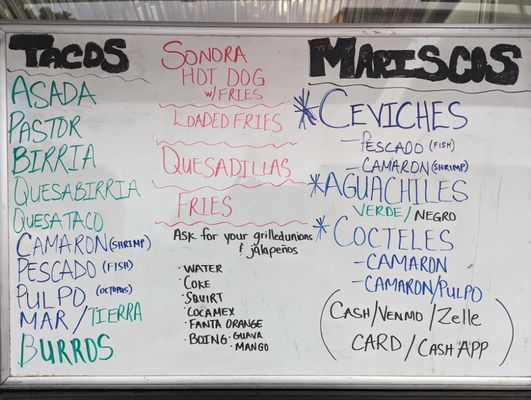 TACOS
ASADA
PASTOR
BIRRIA
QUESABIRRIA
QUESATACO
CAMARON (SHRIMP)
PESCADO (FISH)
PULPO (OCTOPUS)
MAR/TIERRA
BURROS
SONORA
HOT DOG
W/FRIES
LOADED FRIES
QUESADILLAS
FRIES
ASK for your grilledunions
& jalapeños
· WATER
· COKE
· SQUIRT
· COCAMEX
· FANTA ORANGE
· BOING · GUAVA
· MANGO
MARISCOS
*CEVICHES
- PESCADO (FISH)
- CAMARON (SHRIMP)
*AGUACHILES
VERDE/NEGRO
*COCTELES
- CAMARON
- CAMARON/PULPO
(CASH/VENMO/Zelle
CARD/CASH APP)